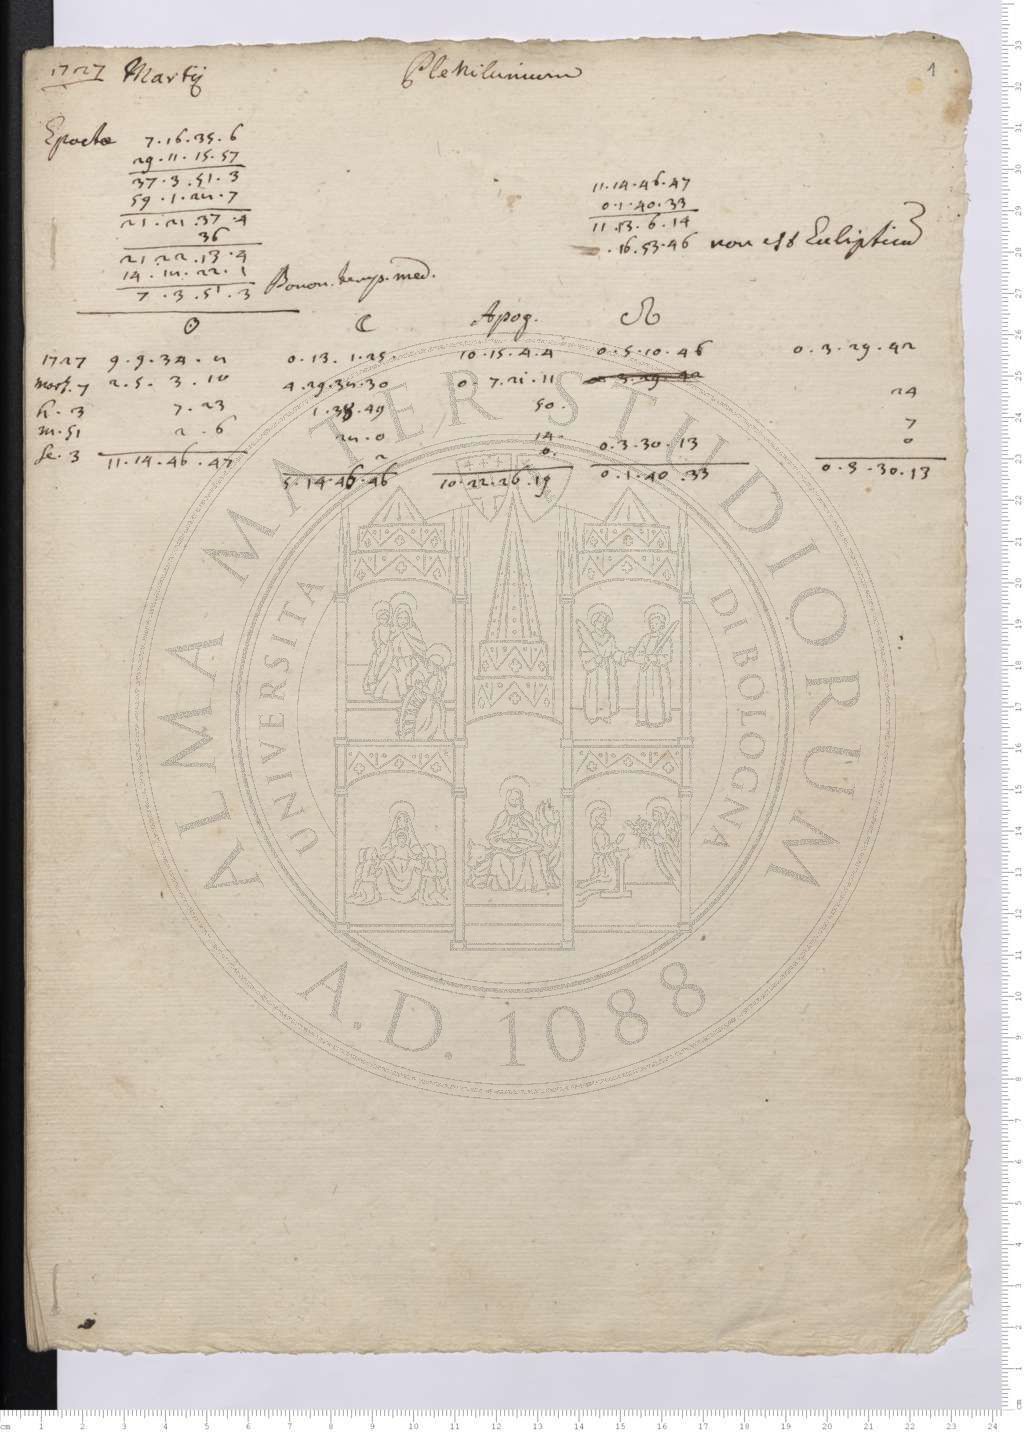 1727 Martij Plenilunium 1
Epactae 7.16.35.6
29.11.15.57
37.3.51.3
59.1.28.7
21.21.37.4
36
21.22.13.4
14.18.22.1
7.3.51.3 Bonon. temp. med.
11.14.46.47
0.1.40.33
11.13.6.14
.16.53.46 non est Eclipticum
☉ ☾ Apog. ☊
1727 9.9.34.8 0.13.1.25. 10.15.4.4 0.5.10.46 0.3.29.42
mart. 7 2.5.3.10 4.29.38.30 0 7.21.11 0.3.29.42 24
h. 3 7.23 1.38.49 50. 7
m. 51 2.6 28.0 14. 0.3.30.13 0
se. 3 11.14.46.47 2 0. 0.1.40.33 0.3.30.13
5.14.46.46 10.22.26.19
ALMA MATER STUDIORUM
UNIVERSITA DI BOLOGNA
A.D. 1088